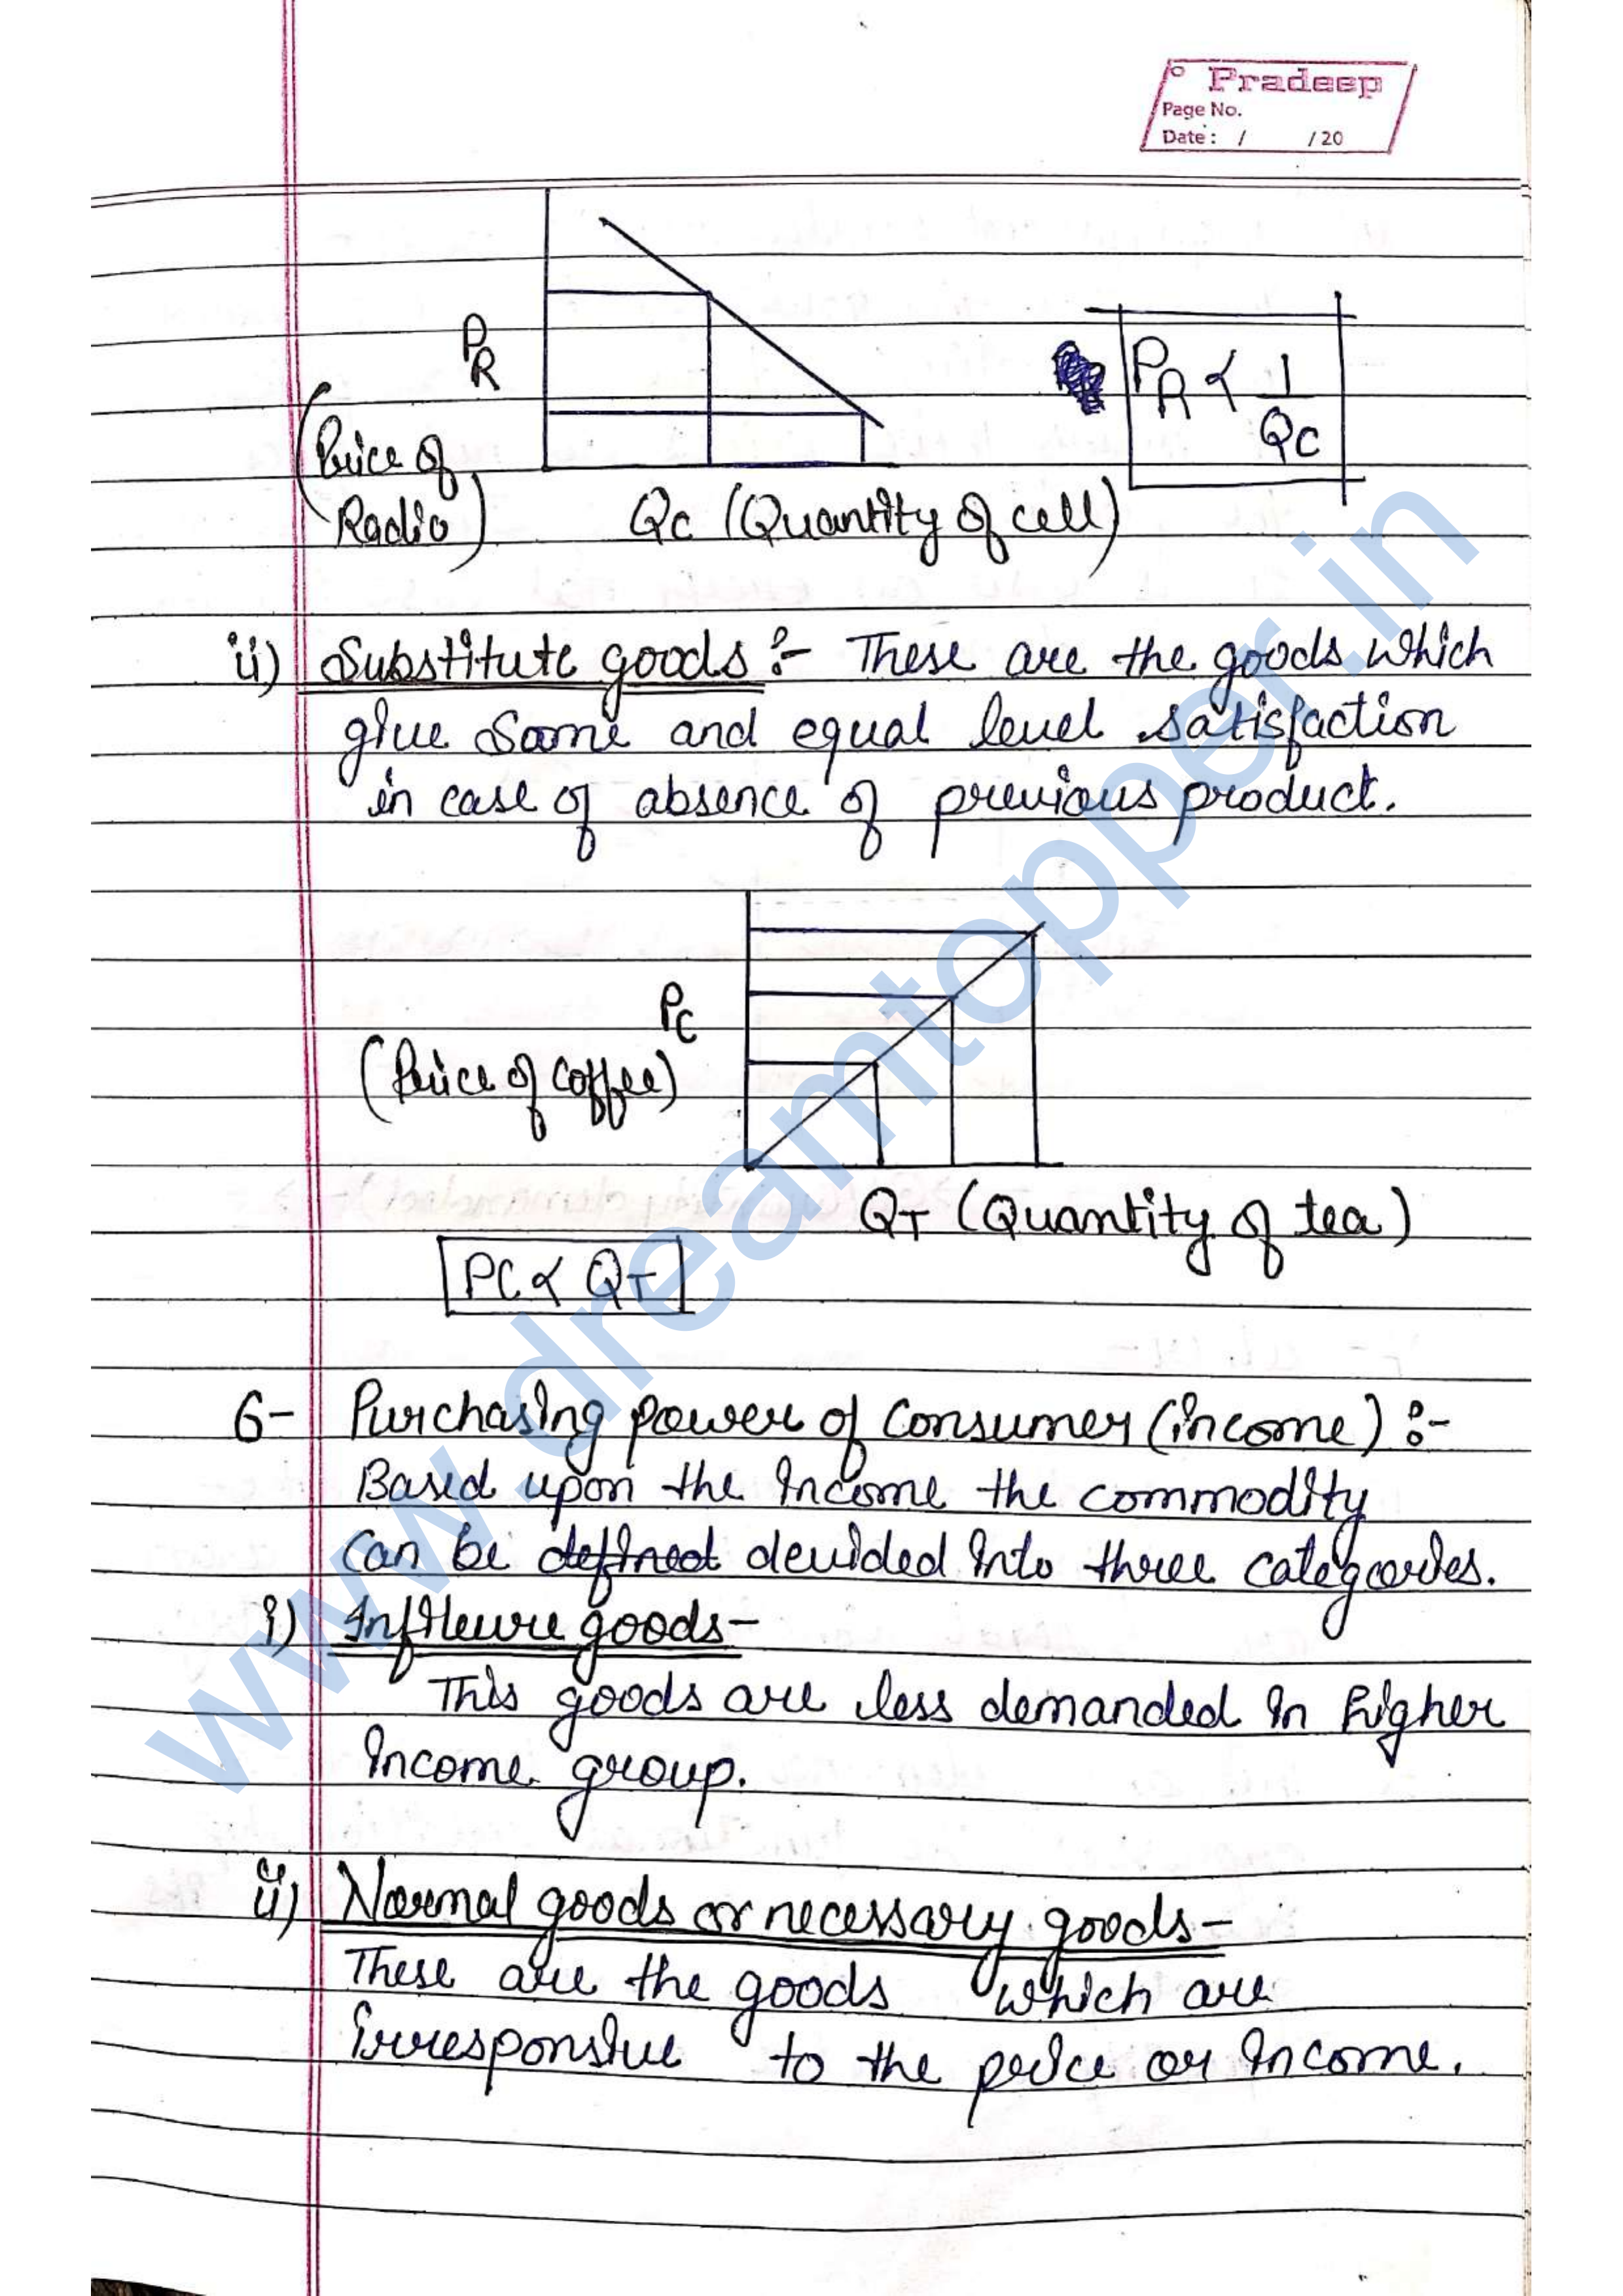 Pradeep
Page No.
Date: / /20
PR
(Price of
Radio)
PR ∝ 1/QC
QC (Quantity of cell)
ii) Substitute goods :- These are the goods which
give Same and equal level satisfaction
in case of absence of previous product.
PC
(Price of coffee)
QT (Quantity of tea)
PC ∝ QT
6- Purchasing power of consumer (income) :-
Based upon the Income the commodity
can be defined devided into three categories.
i) goods-
This goods are less demanded in higher
Income group.
ii) Normal goods or necessary goods-
These are the goods which are
irresponsive to the price or income.
www.dreamtopper.in